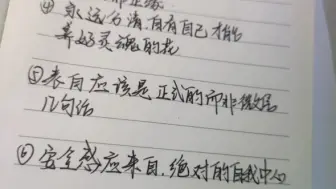 ④ 永远分清,自有自己才能
养好灵魂的花
⑤ 表白应该是正式的而非
几句话
⑥ 安全感应来自,绝对的自我中心